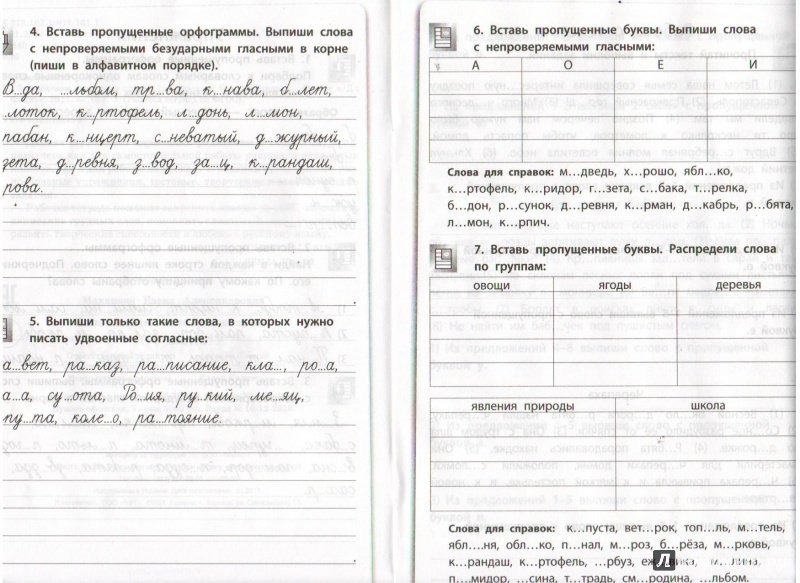 4. Вставь пропущенные орфограммы. Выпиши слова
с непроверяемыми безударными гласными в корне
(пиши в алфавитном порядке).
В...да, ...льбом, тр...ва, к...нава, б...лет,
...лоток, к...ртофель, л...донь, л...мон,
...пабан, к...нцерт, с...неватый, д...журный,
...зета, д...ревня, з...вод, за...ц, к...рандаш,
...рова.
5. Выпиши только такие слова, в которых нужно
писать удвоенные согласные:
...а...вет, ра...каз, ра...писание, кла..., ро...а,
...а...а, су...ота, Ро...ия, ру...кий, ме...яц,
...пу...та, коле...о, ра...тояние.
6. Вставь пропущенные буквы. Выпиши слова
с непроверяемыми гласными:
А О Е И
Слова для справок: м...дведь, х...рошо, ябл...ко,
к...ртофель, к...ридор, г...зета, с...бака, т...релка,
б...дон, р...сунок, д...ревня, к...рман, д...кабрь, р...бята,
л...мон, к...рпич.
7. Вставь пропущенные буквы. Распредели слова
по группам:
овощи ягоды деревья
явления природы школа
Слова для справок: к...пуста, вет...рок, топ...ль, м...тель,
ябл...ня, обл...ко, п...нал, м...роз, б...рёза, м...рковь,
к...рандаш, к...ртофель, ...рбуз, м...лина,
п...мидор, ...сина, т...традь, см...родина, ...льбом.